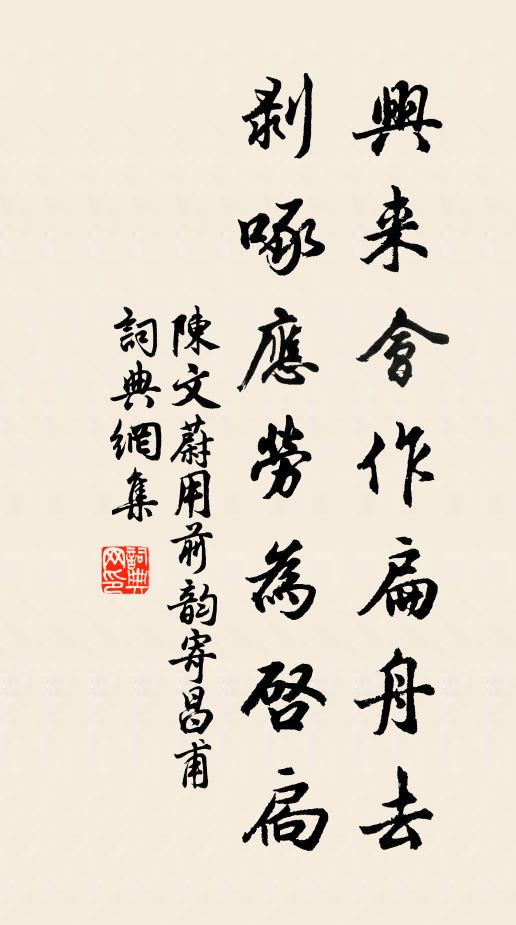 興来會作扁舟去
剥啄應勞為啓扃
陳文蔚用前韵寄昌甫
詞典網集
詞典網印